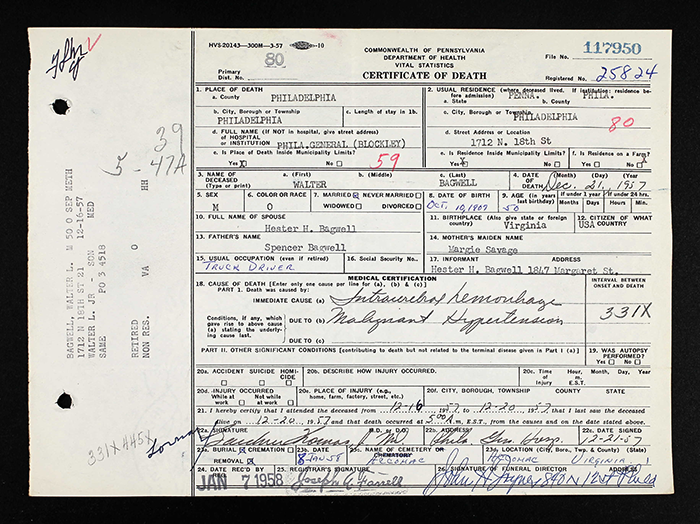 HVS-20143—300M—3-57 10
80
Primary
Dist.
COMMONWEALTH OF PENNSYLVANIA
DEPARTMENT OF HEALTH
VITAL STATISTICS
CERTIFICATE OF DEATH
File No. 117950
Registered No. 25824
1. PLACE OF DEATH
a. County
PHILADELPHIA
2. USUAL RESIDENCE (Where deceased lived. If institution: residence before admission)
a. State PENNA. b. County PHILA.
b. City, Borough or Township
PHILADELPHIA
c. Length of stay in 1b.
c. City, Borough or Township
PHILADELPHIA
80
d. FULL NAME (If NOT in hospital, give street address)
OF HOSPITAL
or INSTITUTION PHILA.GENERAL (BLOCKLEY)
d. Street Address or Location
1712 N. 18th St
e. Is Place of Death Inside Municipality Limits?
Yes X No
59
e. Is Residence Inside Municipality Limits?
Yes X No
f. Is Residence on a Farm?
Yes No X
3. NAME OF DECEASED
(Type or print)
a. (First)
WALTER
b. (Middle)
c. (Last)
BAGWELL
4. DATE OF DEATH
(Month) (Day) (Year)
Dec. 21, 1957
5. SEX
M
6. COLOR OR RACE
7. MARRIED NEVER MARRIED
WIDOWED DIVORCED
8. DATE OF BIRTH
Oct, 10, 1907
9. AGE (In years last birthday)
50
If under 1 year
Months Days
If under 24 hrs.
Hours Min.
10. FULL NAME OF SPOUSE
Hester H. Bagwell
11. BIRTHPLACE (Also give state or foreign country)
Virginia
12. CITIZEN OF WHAT COUNTRY?
USA
13. FATHER'S NAME
Spencer Bagwell
14. MOTHER'S MAIDEN NAME
Margie Savage
15. USUAL OCCUPATION (even if retired)
TRUCK DRIVER
16. Social Security No.
17. INFORMANT Address
Hester H. Bagwell 1847 Margaret St.
MEDICAL CERTIFICATION
18. CAUSE OF DEATH [Enter only one cause per line for (a), (b) & (c)]
PART 1. Death was caused by:
IMMEDIATE CAUSE (a)
INTERVAL BETWEEN ONSET AND DEATH
331X
Conditions, if any, which gave rise to above cause (a) stating the underlying cause last.
DUE TO (b) Malignant Hypertension
DUE TO (c)
PART II. OTHER SIGNIFICANT CONDITIONS [contributing to death but not related to the terminal disease given in Part I (a)]
19. WAS AUTOPSY PERFORMED?
Yes No
20a. ACCIDENT SUICIDE HOMICIDE
20b. DESCRIBE HOW INJURY OCCURRED.
20c. Time of Injury
Hour Month, Day, Year
m. E.S.T.
20d. INJURY OCCURRED
While at work Not while at work
20e. PLACE OF INJURY (e.g., home, farm, factory, street, etc.)
20f. CITY, BOROUGH, TOWNSHIP COUNTY STATE
21. I hereby certify that I attended the deceased from 12-16 1957 to 12-20 1957 that I last saw the deceased
alive on 12-20 1957 and that death occurred at m., E.S.T., from the causes and on the date stated above.
22a. SIGNATURE (M.D. or D.O.)
22b. ADDRESS
Phila Gen Hosp.
22c. DATE SIGNED
12-21-57
23a. BURIAL CREMATION
REMOVAL
23b. DATE
8 JAN 58
23c. NAME OF CEMETERY OR CREMATORY
ACCOMAC
23d. LOCATION (City, Boro, Twp. & County) (State)
ACCOMAC VIRGINIA
24. DATE REC'D BY
JAN 7 1958
25. REGISTRAR'S SIGNATURE
Joseph A. Farrell
26. SIGNATURE OF FUNERAL DIRECTOR ADDRESS
BAGWELL, WALTER L. M 50 O SEP METH
1712 N 18TH ST 21 12-16-57
WALTER L. JR - SON MED
SAME PO 3 4518
RETIRED VA O HH
NON RES.
39
5- 47A
331X 445X